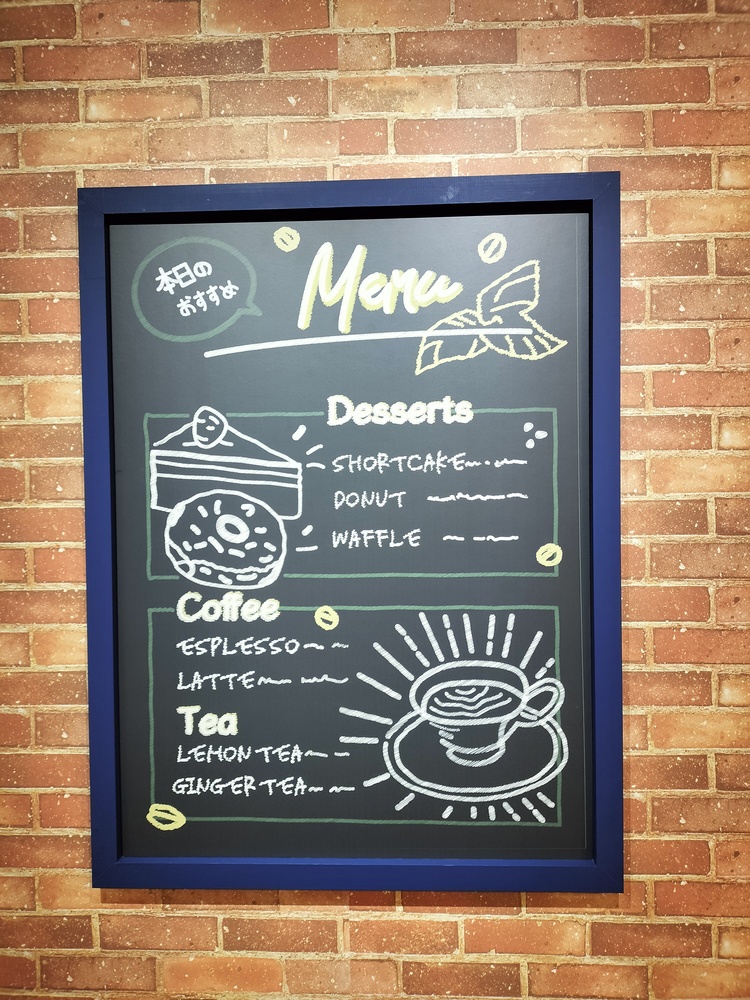 本日の
おすすめ
Menu
Desserts
SHORTCAKE
DONUT
WAFFLE
Coffee
ESPLESSO
LATTE
Tea
LEMON TEA
GINGER TEA